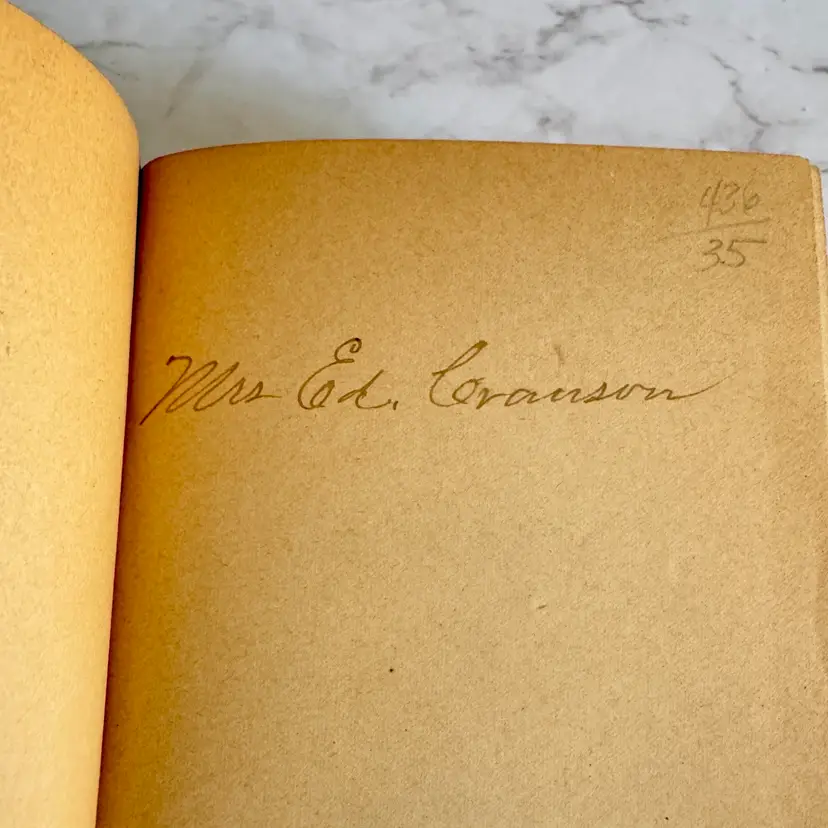 436
35
Mrs Ed. Cranson